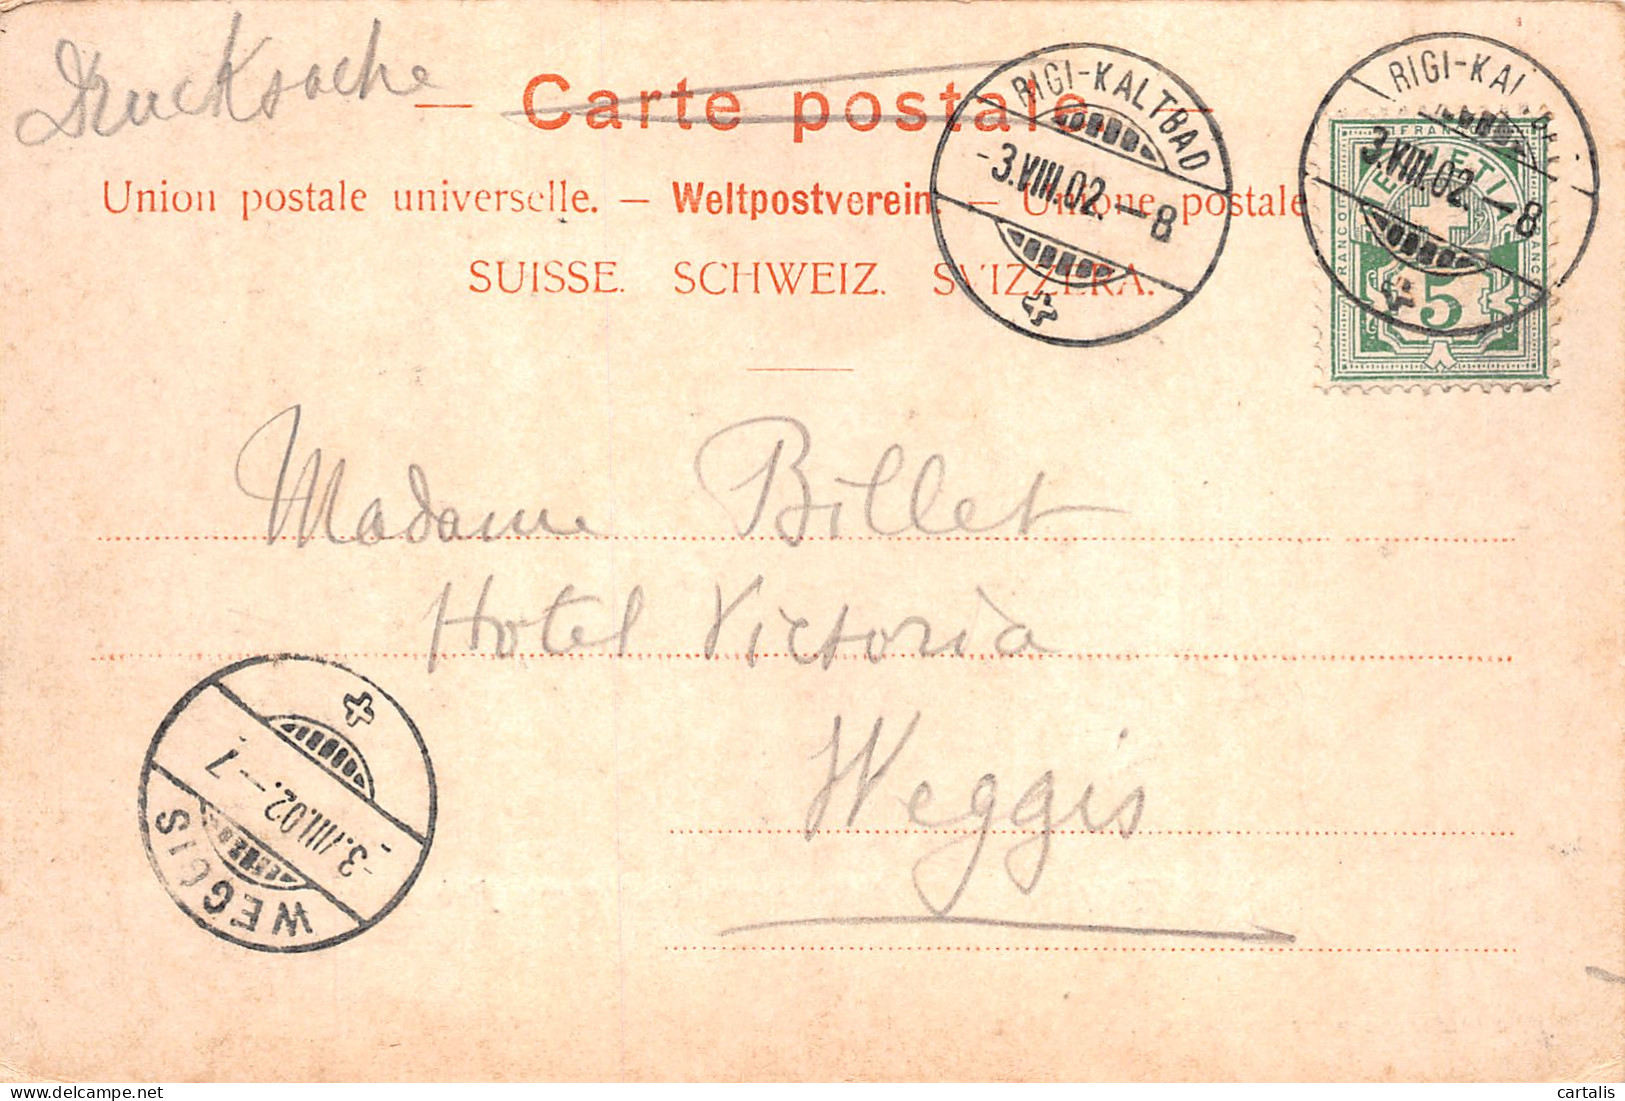 Drucksache
— Carte postale —
RIGI-KALTBAD
-3.VIII.02.—8
RIGI-KAL
3.VIII.02.—8
FRANCO
HELVETIA
FRANCO
FRANCO
5
Union postale universelle. — Weltpostverein. — Unione postale
SUISSE. SCHWEIZ. SVIZZERA.
Madame Billet
Hotel Victoria
Weggis
-3.VIII.02.—7
WEGGIS
cartalis